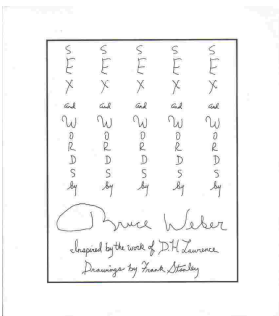 S S S S S
E E E E E
X X X X X
and and and and and
W W W W W
O O O O O
R R R R R
D D D D D
S S S S S
by by by by by
Bruce Weber
Inspired by the work of D.H. Lawrence
Drawings by Frank Stanley